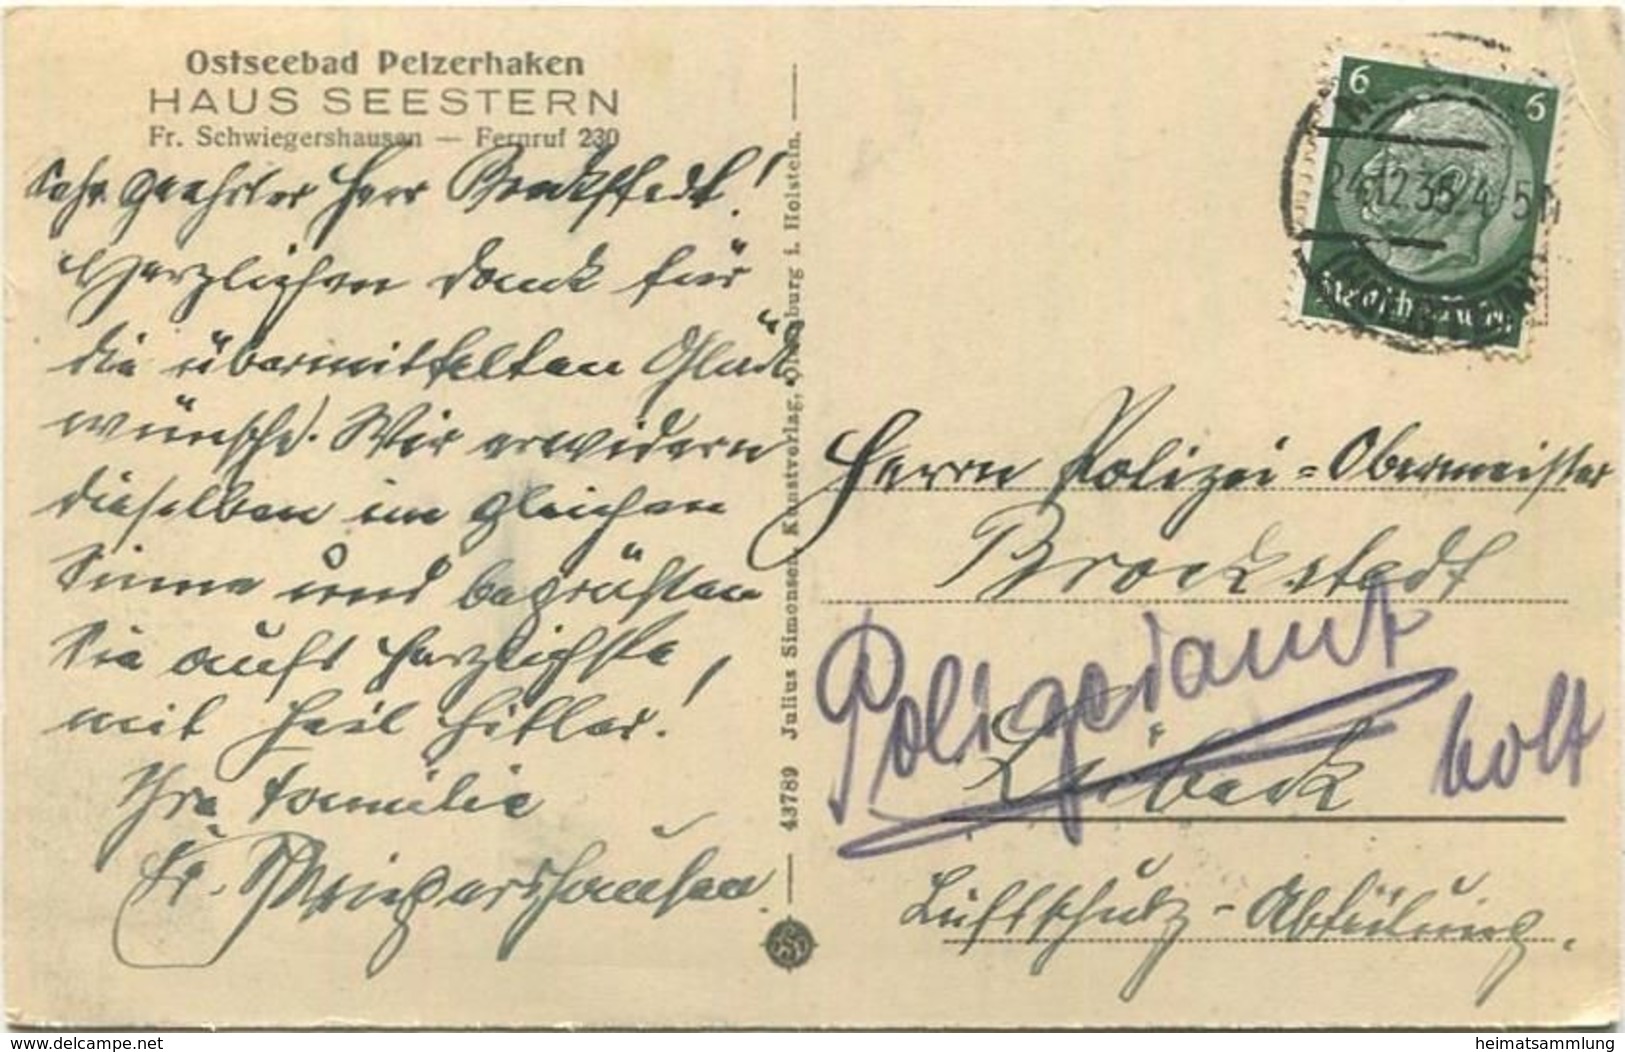 Ostseebad Pelzerhaken
HAUS SEESTERN
Fr. Schwiegershausen — Fernruf 230
Sehr geehrter Herr Brockstedt!
Herzlichen Dank für
die übermittelten Glück
wünsche. Wir erwidern
dieselben im gleichen
Sinne und begrüßen
Sie aufs herzlichste,
mit Heil Hitler!
Ihre Familie
Fr. Schwiegershausen.
43789 Julius Simonsen, Kunstverlag, Oldenburg i. Holstein.
6 6
24.12.35.4-5N
Herrn Polizei-Obermeister
Brockstedt
Polizeiamt
Lübeck
Luftschutz-Abteilung.
delcampe.net
heimatsammlung